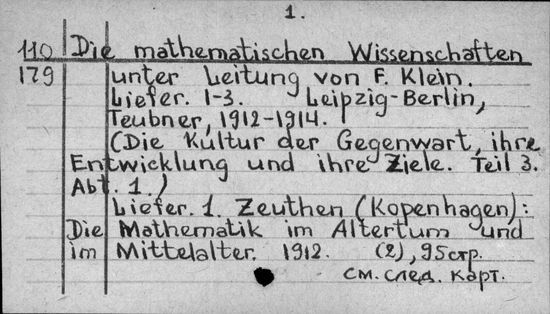 1.
110 Die mathematischen Wissenschaften
179 unter Leitung von F. Klein.
Liefer. 1-3. Leipzig-Berlin,
Teubner, 1912-1914.
(Die Kultur der Gegenwart, ihre
Entwicklung und ihre Ziele. Teil 3.
Abt. 1.)
Liefer. 1. Zeuthen (Kopenhagen):
Die Mathematik im Altertum und
im Mittelalter. 1912. (2), 95 стр.
см. след. карт.